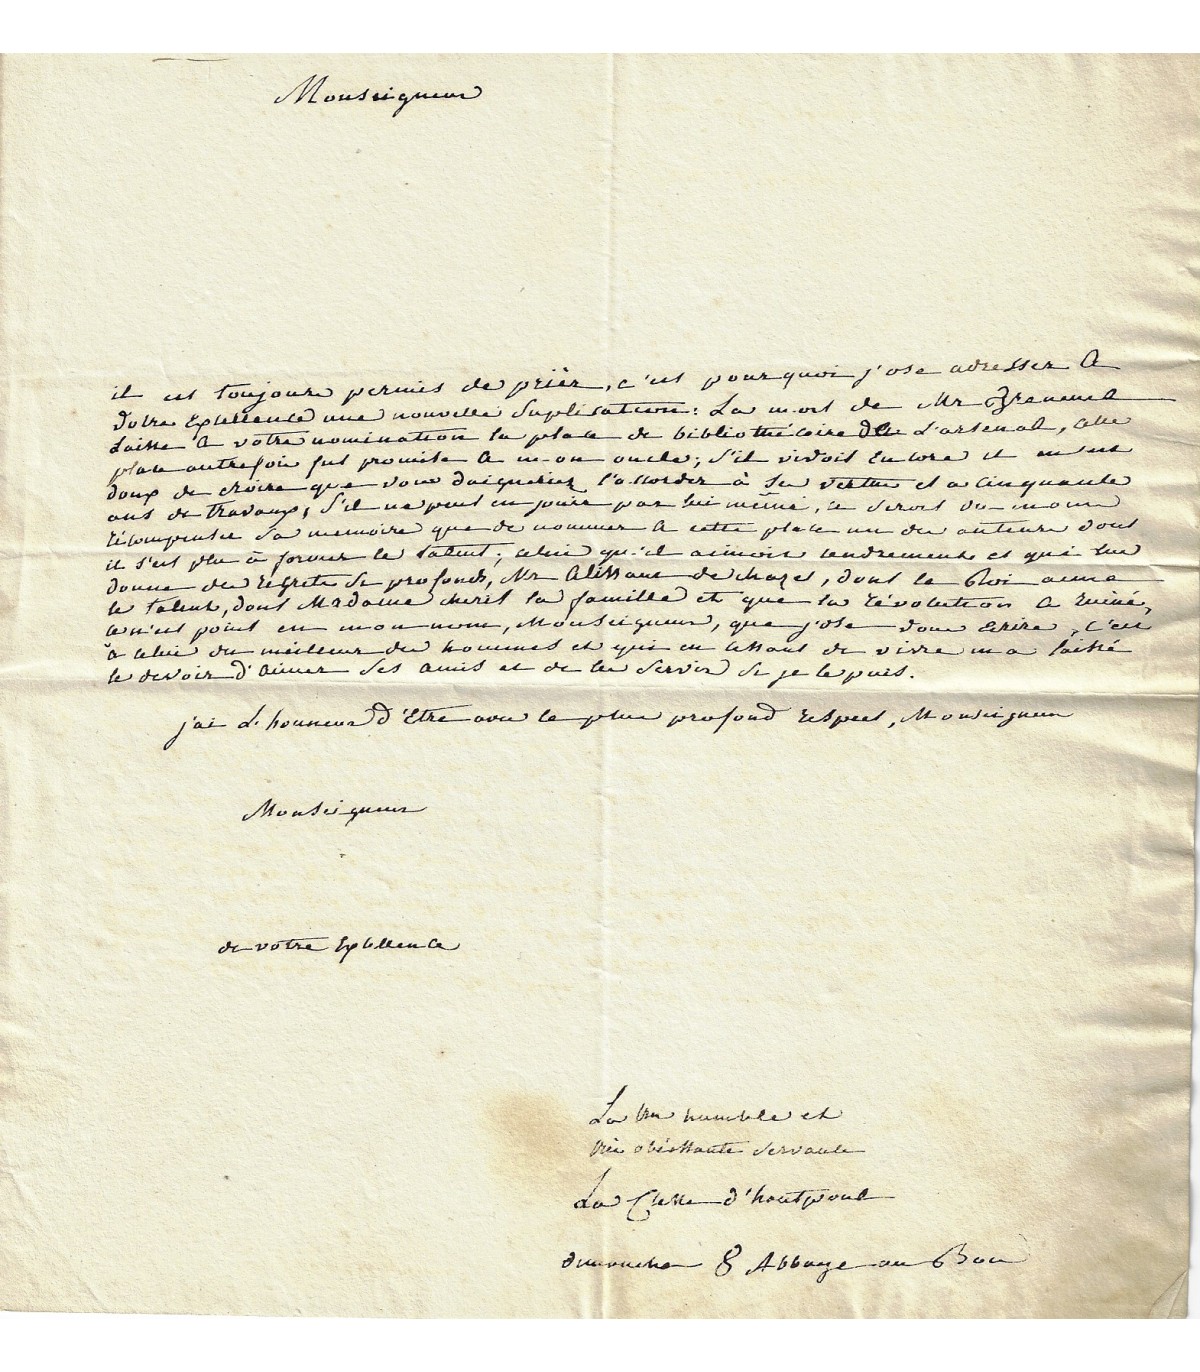 Monseigneur
il est toujours permis de prier, c'est pourquoi j'ose adresser a
votre Excellence une nouvelle suplication: La mort de Mr
laisse a votre nomination la place de bibliothécaire de L'arsenal, cette
place autrefois fut promise a mon oncle; s'il vivoit Encore il m'est
doux de croire que vous daigneriez l'accorder à sa vertu et a cinquante
ans de travaux, s'il ne peut en jouir par lui même, ce seroit du moins
récompenser sa memoire que de nommer a cette place un des auteurs dont
il s'est plu à former le talent; celui qu'il aimoit tendrement et qui lui
donne des regrets si profonds, Mr Alissant de chazet, dont le Roi aime
le talent, dont Madame cherit la famille et que la révolution a ruiné,
ce n'est point en mon nom, Monseigneur, que j'ose vous Ecrire, c'est
à celui du meilleur des hommes et qui en cessant de vivre m'a laissé
le devoir d'aimer ses amis et de les servir si je le puis.
j'ai L'honneur d'Etre avec le plus profond respect, Monseigneur
Monseigneur
de votre Excellence
La très humble et
très obéissante servante
La Ctesse d'hautpoul
dimanche 8 Abbaye au Bois